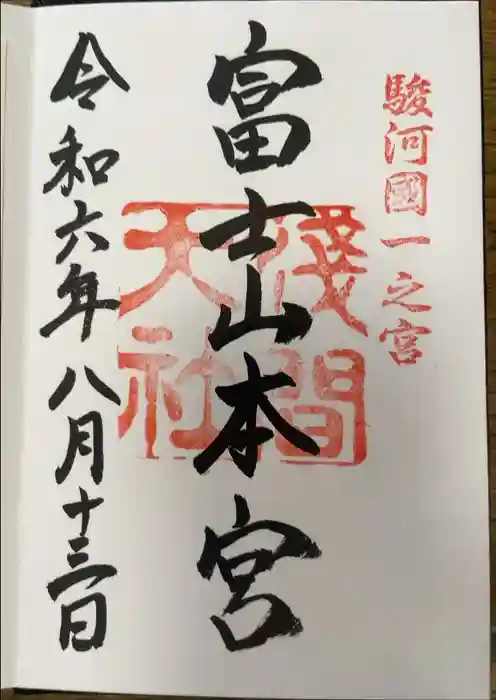 駿河國一之宮
富士山本宮
淺間
大社
令和六年八月十三日